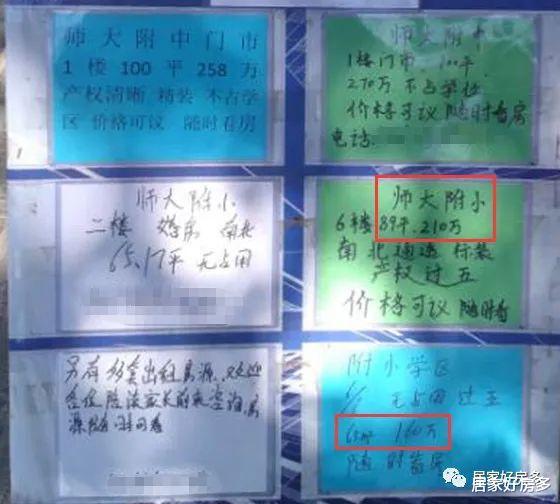 师大附中门市
1楼 100平 258万
产权清晰 精装 不占学
区 价格可议 随时看房
师大附中
1楼门市 100平
270万 不占学位
价格可议 随时看房
电话
师大附小
二楼 婚房 南北
65.17平 无占用
师大附小
6楼 89平. 210万
南北通透 标装
产权过五
价格可议 随时看
另有多套出租房源.欢迎
各位陪读家长前来咨询,房
源随时可看
附小学区
无占用 过五
65平 160万
随时看房
居家好房多
居家好房多